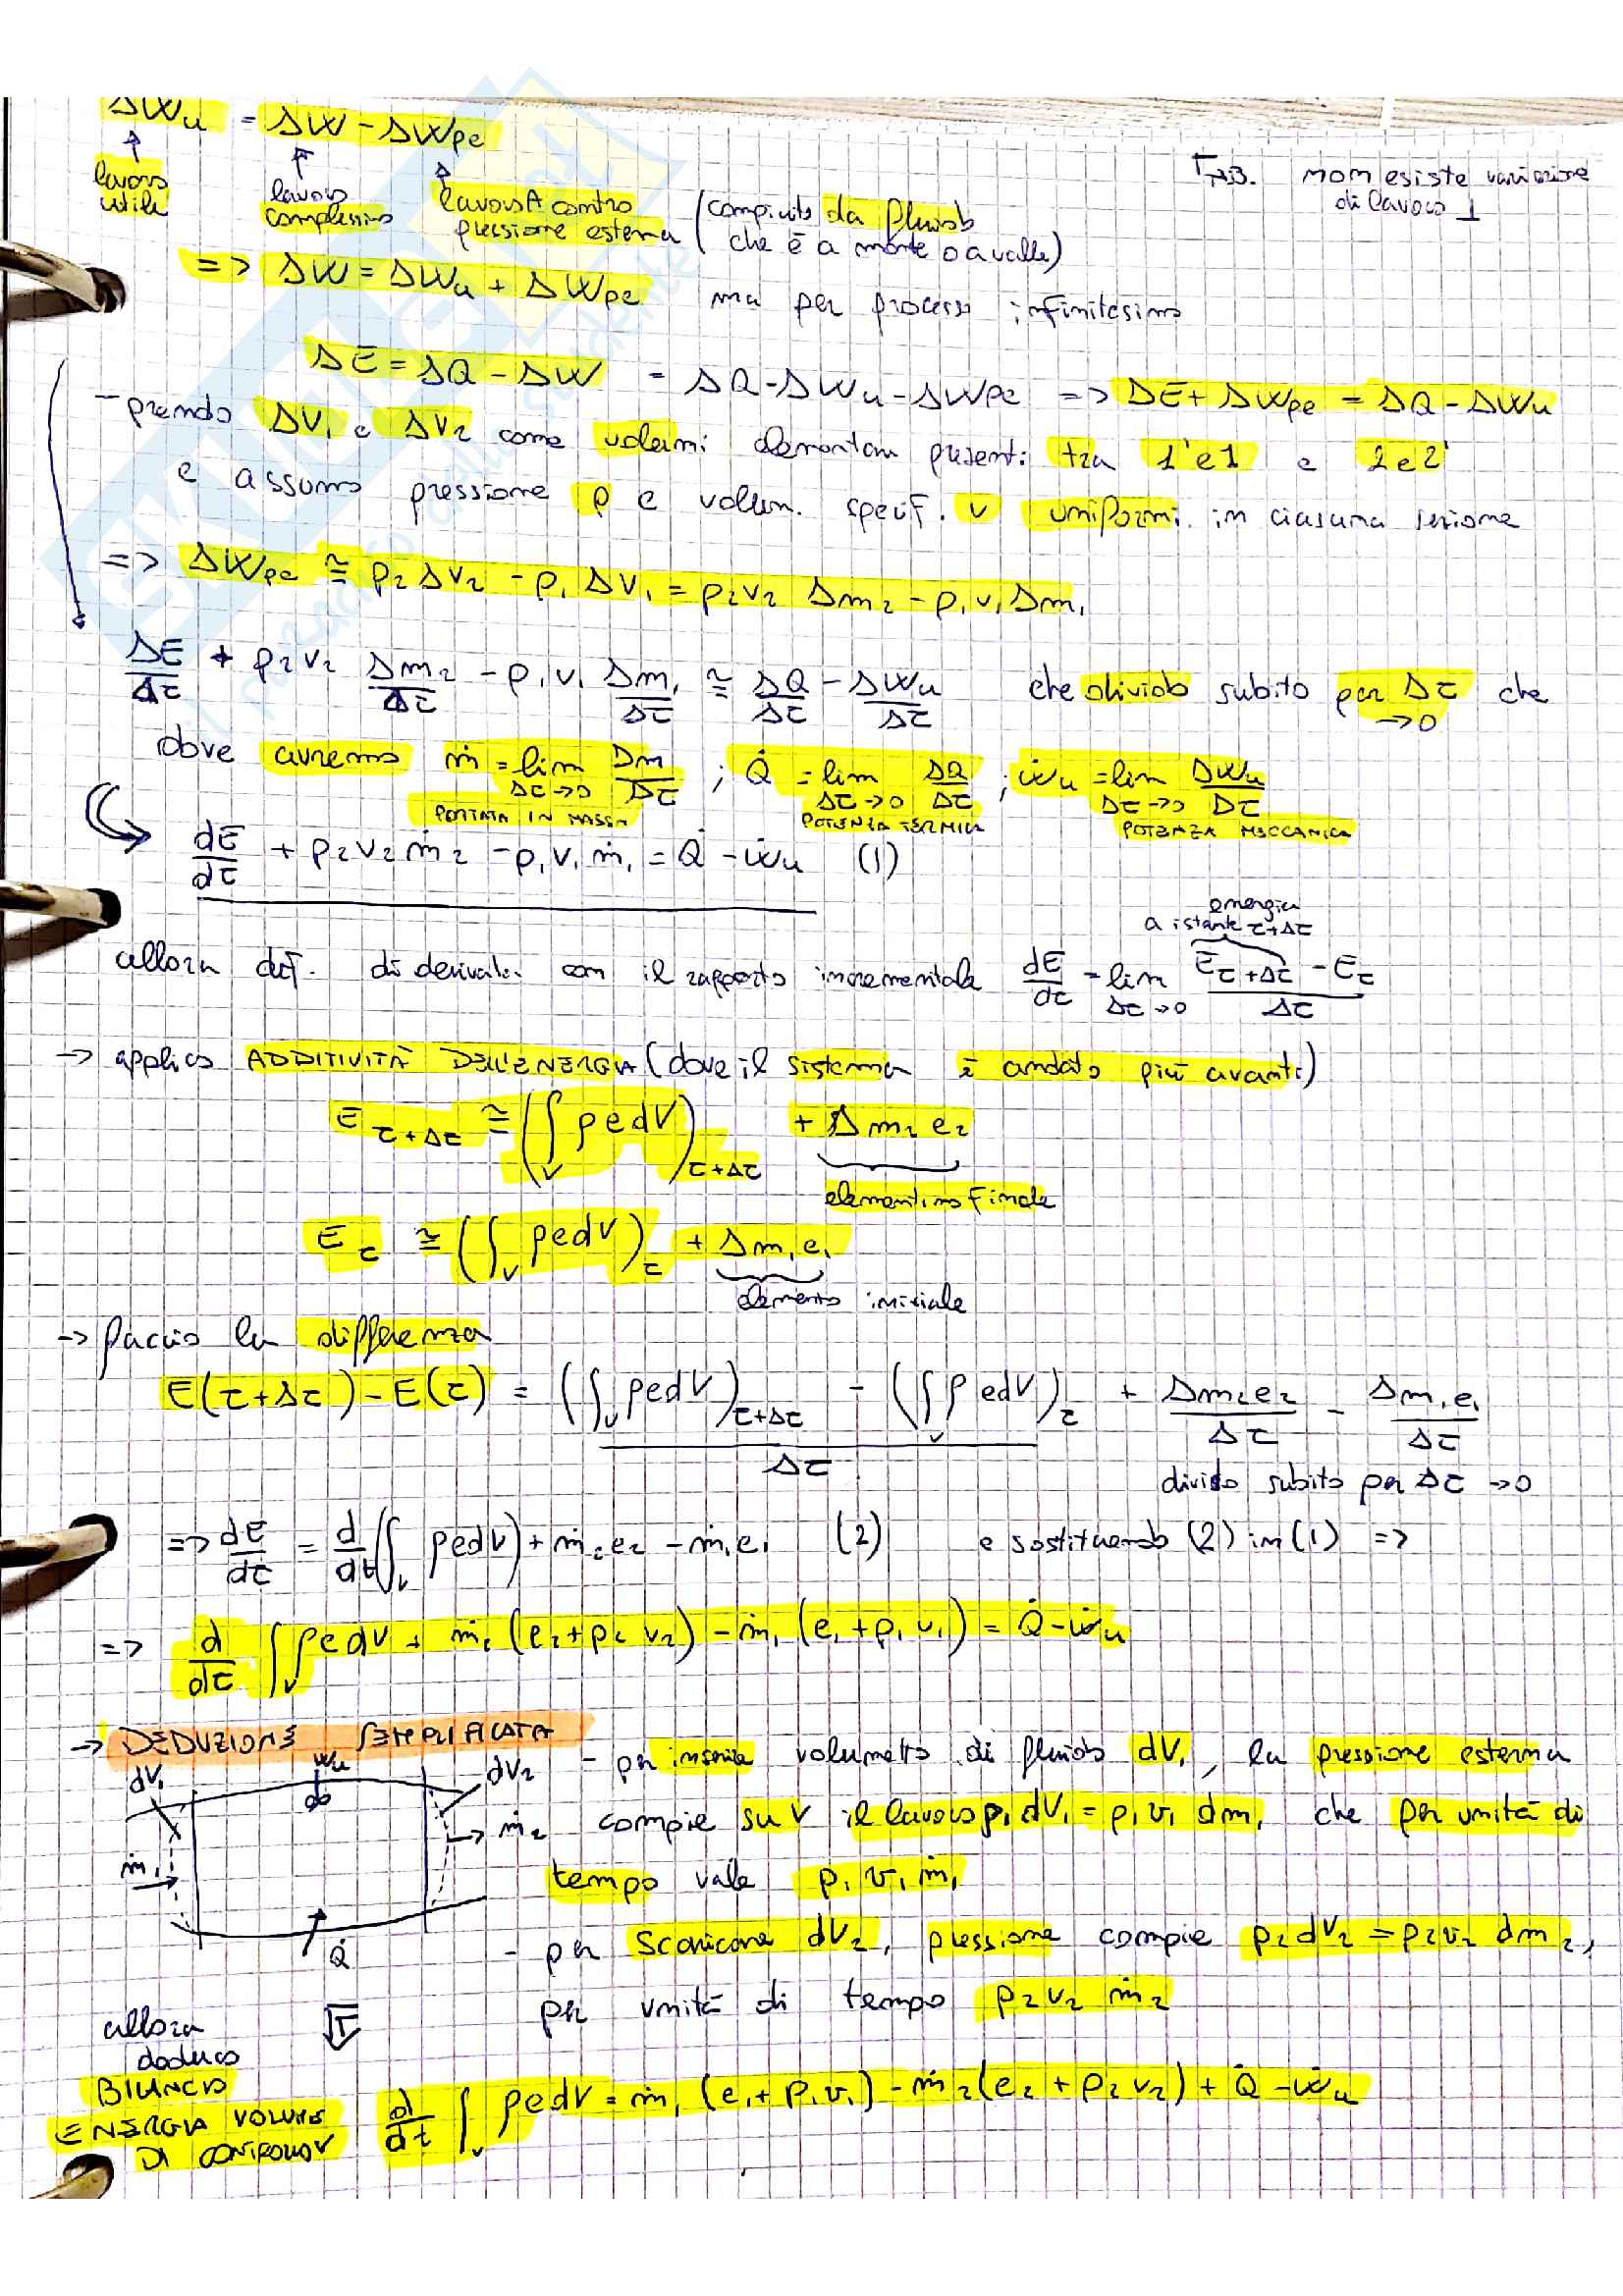 ΔWu = ΔW - ΔWpe
lavoro utile
lavoro complessivo
lavoro contro pressione esterna (compiuto da fluido che è a monte o a valle)
N.B. non esiste variazione di lavoro
=> ΔW = ΔWu + ΔWpe ma per processo infinitesimo
ΔE = ΔQ - ΔW = ΔQ - ΔWu - ΔWpe => ΔE + ΔWpe = ΔQ - ΔWu
- prendo ΔV1 e ΔV2 come volumi elementari presenti tra 1'e1 e 2e2'
e assumo pressione p e volum. specif. v uniformi in ciascuna sezione
=> ΔWpe ≅ p2 ΔV2 - p1 ΔV1 = p2v2 Δm2 - p1v1 Δm1
ΔE/Δτ + p2v2 Δm2/Δτ - p1v1 Δm1/Δτ ≅ ΔQ/Δτ - ΔWu/Δτ che divido subito per Δτ →0 che
dove avremo ṁ = lim Δτ→0 Δm/Δτ ; Q̇ = lim Δτ→0 ΔQ/Δτ ; ẇu = lim Δτ→0 ΔWu/Δτ
PORTATA IN MASSA POTENZA TERMICA POTENZA MECCANICA
dE/dτ + p2v2 ṁ2 - p1v1 ṁ1 = Q̇ - ẇu (1)
energia a istante τ+Δτ
allora def. di derivata con il rapporto incrementale dE/dτ = lim Δτ→0 (Eτ+Δτ - Eτ)/Δτ
→ applico ADDITIVITÀ DELL'ENERGIA (dove il sistema è andato più avanti)
Eτ+Δτ ≅ (∫v ρedV)τ+Δτ + Δm2 e2
elementino finale
Eτ ≅ (∫v ρedV)τ + Δm1e1
elemento iniziale
→ faccio la differenza
E(τ+Δτ) - E(τ) = (∫v ρedV)τ+Δτ - (∫v ρedV)τ / Δτ + Δm2e2/Δτ - Δm1e1/Δτ
divido subito per Δτ →0
=> dE/dτ = d/dt (∫v ρedV) + ṁ2e2 - ṁ1e1 (2) e sostituendo (2) in (1) =>
=> d/dτ ∫v ρedV + ṁ2 (e2+p2v2) - ṁ1 (e1+p1v1) = Q̇ - ẇu
→ DEDUZIONE SEMPLIFICATA
dV1
Ẇu
dV2
ṁ1
ṁ2
Q̇
- per inserire volumetto di fluido dV1, la pressione esterna
compie su V il lavoro p1 dV1 = p1v1 dm1 che per unità di
tempo vale p1v1ṁ1
- per scaricare dV2, pressione compie p2dV2 = p2v2 dm2,
per unità di tempo p2v2 ṁ2
allora
deduco
BILANCIO
ENERGIA VOLUME
DI CONTROLLO V
d/dt ∫v ρedV = ṁ1 (e1+p1v1) - ṁ2 (e2+p2v2) + Q̇ - ẇu